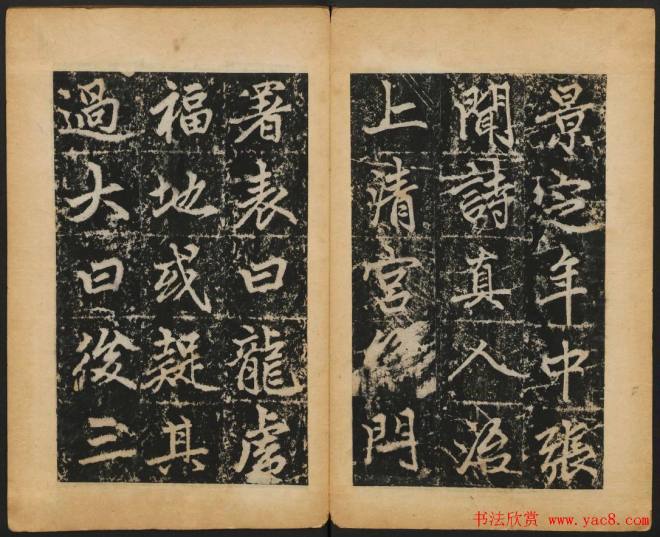 景定年中張
聞詩真人治
上清宮門
署表曰龍虎
福地或疑其
過大曰後三
书法欣赏 www.yac8.com